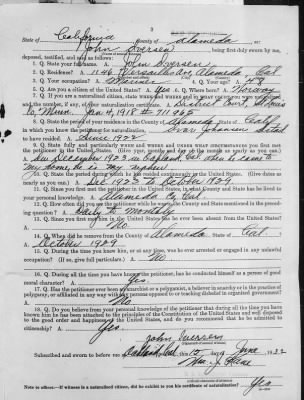 3
State of California County of Alameda ss:
John Iversen being first duly sworn by me,
deposed, testified, and said as follows:
Q. State your full name. A. John Iversen
Q. Residence? A. 1146 Versailles Ave, Alameda Cal
Q. Your occupation? A. Mariner Q. Your age? A. 49
Q. Are you a citizen of the United States? A. Yes Q. Where born? A. Norway
Q. If you are a naturalized citizen, state when and
and the number, if any, of your naturalization certificate. A. District Court
Minn Jan 4, 1918 # 711065
Q. State the period of your residence in the County of Alameda State of Calif
in which you know the petitioner for naturalization, Ivar Johansen
A. Since 1922
Q. State fully and particularly WHEN and WHERE and UNDER WHAT CIRCUMSTANCES you first met
the petitioner in the United States.
In December 1923 in Oakland, Cal when he came to
my home he is my nephew
10. State the period during which he has resided continuously in the United States. (Give dates as
nearly as you can.) A. Dec 1923 to October 1929
11. Q. Since you first met the petitioner in the United States, in what County and State has he lived to
your personal knowledge? A. Alameda Co Cal
12. Q. How often did you see the petitioner while he was in the County and State mentioned in the preced-
ing question? A. Daily to monthly
13. Q. Since you have known him has he ever been absent from the United States?
A. No
14. Q. When did he remove from the County of Alameda State of Cal
A. October 1929
15. Q. During the time you have known him, or at any time, was he ever arrested or engaged in any unlawful
occupation? (If so, give full particulars.) A. No
16. Q. During all the time you have known the petitioner, has he conducted himself as a person of good
moral character? A. Yes
17. Q. Has the petitioner ever been an anarchist or a polygamist, a believer in anarchy or in the practice of
polygamy, or affiliated in any way with any persons opposed to or teaching disbelief in organized government?
A. No
18. Q. Do you believe from your personal knowledge of the petitioner that during all the time you have
known him he has been attached to the principles of the Constitution of the United States and well disposed
to the good order and happiness of the United States, and do you recommend that he be admitted to
citizenship? A. Yes
John Iversen
Subscribed and sworn to before me Oakland, Cal June 1932
Note to officer.—If witness is a naturalized citizen, did he exhibit to you his certificate of naturalization? Yes